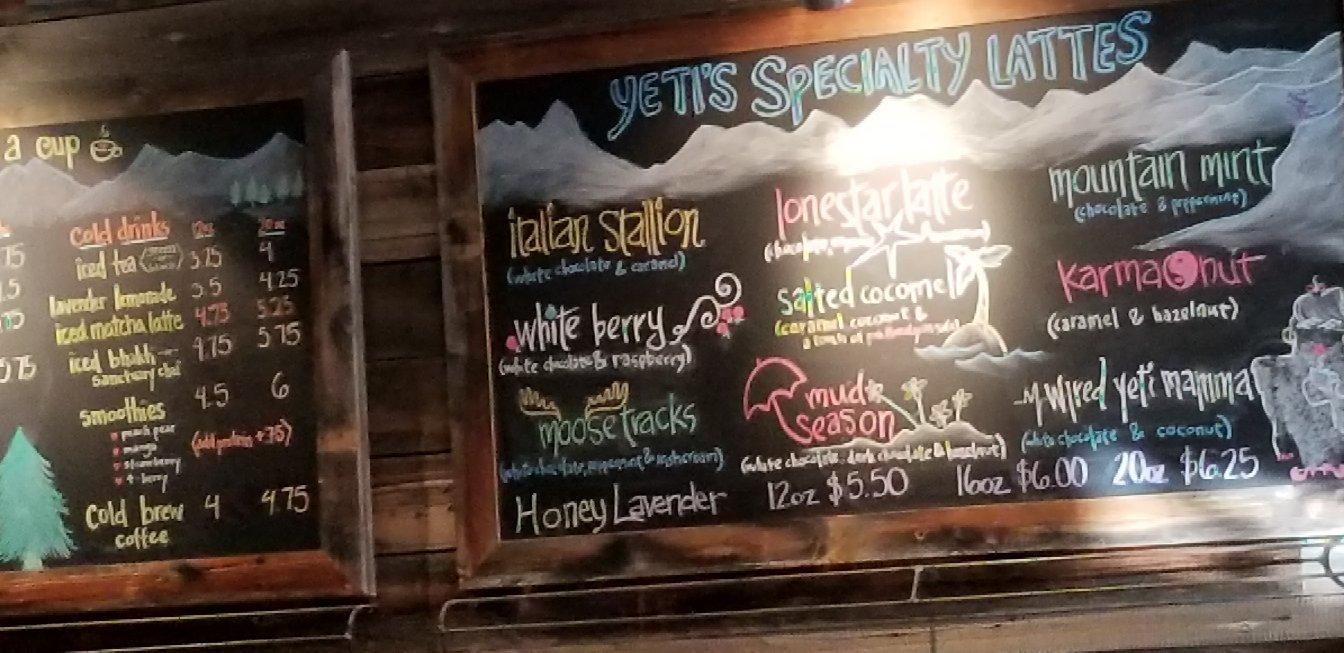 a cup
cold drinks 20oz
75 iced tea 3.75 4
lavender lemonade 3.5 4.25
iced matcha latte 4.75 5.25
iced bhakti 4.75 5.75
sanctuary chai
smoothies 4.5 6
peach pear (add protein +.75)
mango
strawberry
berry
cold brew 4 4.75
coffee
YETI'S SPECIALTY LATTES
italian stallion
(white chocolate & caramel)
white berry
(white chocolate & raspberry)
moose tracks
(white chocolate,
Honey Lavender
lonestar latte
(chocolate,
salted cocomel
(caramel coconut &
a touch of
mud
season
(white chocolate, dark chocolate & hazelnut)
mountain mint
(chocolate & peppermint)
karma nut
(caramel & hazelnut)
Wired yeti mamma
(white chocolate & coconut)
12oz $5.50 16oz $6.00 20oz $6.25